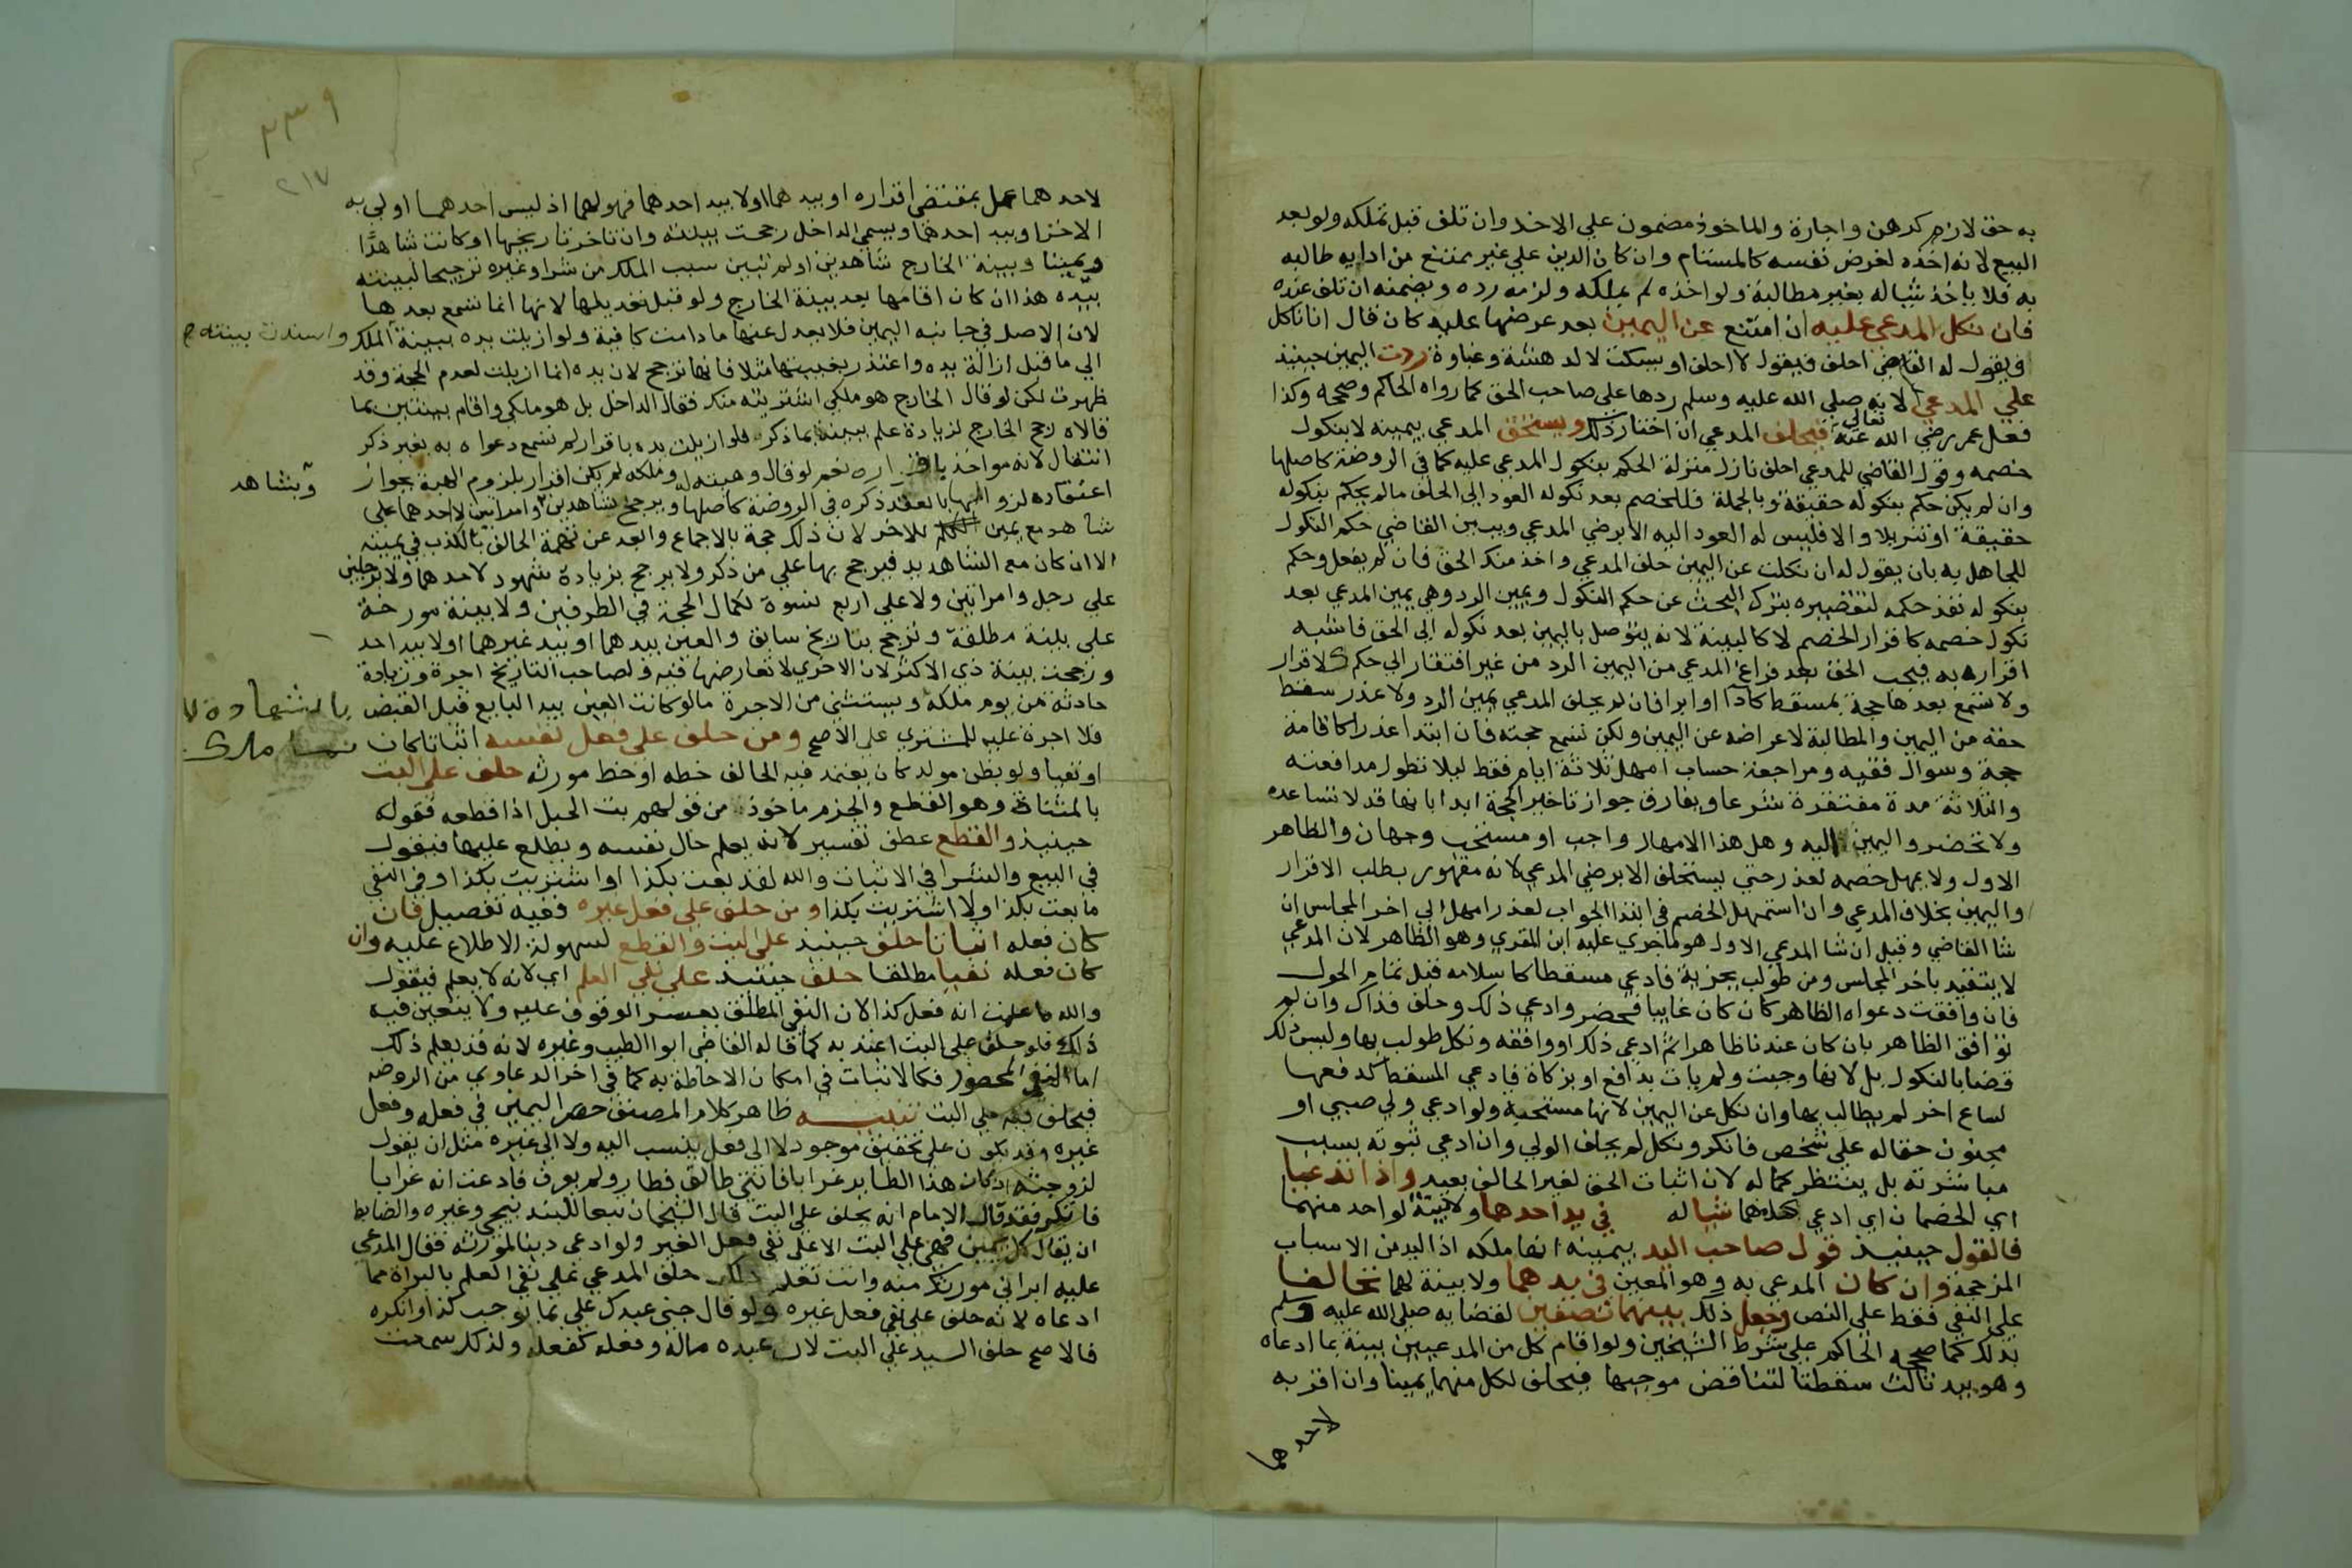 به حق لازم كرهن واجارة والماخوذ مضمون علي الاخذ وان تلف قبل تملكه ولو بعد
البيع لانه اخذه لغرض نفسه كالمستام وان كان الدين علي غير ممتنع من ادايه طالبه
به فلا ياخذ شيا له بغير مطالبة ولو اخذه لم يملكه ولزمه رده ويضمنه ان تلف عنده
فان نكل المدعي عليه اي امتنع عن اليمين بعد عرضها عليه كان قال انا ناكل
او يقول له القاضي احلف فيقول لا احلف او يسكت لا لدهشة وغباوة ردت اليمين حينيذ
علي المدعي لانه صلي الله عليه وسلم ردها علي صاحب الحق كما رواه الحاكم وصححه وكذا
فعل عمر رضي الله تعالي عنه فيحلف المدعي ان اختار ذلك ويستحق المدعي بيمينه لا بنكول
خصمه وقول القاضي للمدعي احلف نازل منزلة الحكم بنكول المدعي عليه كما في الروضة كاصلها
وان لم يكن حكم بنكوله حقيقة وبالجملة فللخصم بعد نكوله العود الي الحلف مالم يحكم بنكوله
حقيقة او تنزيلا والا فليس له العود اليه الا برضي المدعي ويبين القاضي حكم النكول
للجاهل به بان يقول له ان نكلت عن اليمين حلف المدعي واخذ منك الحق فان لم يفعل وحكم
بنكوله نفذ حكمه لتقصيره بترك البحث عن حكم النكول ويمين الرد وهي يمين المدعي بعد
نكول خصمه كاقرار الخصم لا كالبينة لانه يتوصل باليمين بعد نكوله الي الحق فاشبه
اقراره به فيجب الحق بعد فراغ المدعي من اليمين الرد من غير افتقار الي حكم كالاقرار
ولا تسمع بعدها حجة بمسقط كادا او ابرا فان لم يحلف المدعي يمين الرد ولا عذر سقط
حقه من اليمين والمطالبة لاعراضه عن اليمين ولكن تسمع حجته فان ابتدا عذرا كاقامة
حجة وسوال فقيه ومراجعة حساب امهل ثلاثة ايام فقط ليلا تطول مدافعته
والثلاثة مدة مغتفرة شرعا ويفارق جواز تاخير الحجة ابدا بانها قد لا تساعده
ولا تحضر واليمين اليه وهل هذا الامهال واجب او مستحب وجهان والظاهر
الاول ولا يمهل خصمه لعذر حتي يستحلف الا برضي المدعي لانه مقهور بطلب الاقرار
واليمين بخلاف المدعي وان استمهل الخصم في ابتدا الجواب لعذر امهل الي اخر المجلس ان
شا القاضي وقيل ان شا المدعي الاول هو ما جري عليه ابن المقري وهو الظاهر لان المدعي
لا يتقيد باخر المجلس ومن طولب بجزية فادعي مسقطا كاسلامه قبل تمام الحول
فان وافقت دعواه الظاهر كان كان غايبا فحضر وادعي ذلك وحلف فذاك وان لم
توافق الظاهر بان كان عندنا ظاهرا ثم ادعي ذلك او وافقه ونكل طولب بها وليس ذلك
قضا بالنكول بل لانها وجبت ولم يات بدافع او بزكاة فادعي المسقط كدفعها
لساع اخر لم يطالب بها وان نكل عن اليمين لانها مستحبة ولو ادعي ولي صبي او
مجنون حقا له علي شخص فانكر ونكل لم يحلف الولي وان ادعي ثبوته بسبب
مباشرته بل ينتظر كماله لان اثبات الحق لغير الحالف بعيد واذا تدعيا
اي الخصمان اي ادعي كل منهما شيا له في يد احدهما ولا بينة لواحد منهما
فالقول حينيذ قول صاحب اليد بيمينه انها ملكه اذ اليد من الاسباب
المرجحة وان كان المدعي به وهو المعين في يدهما ولا بينة لهما تحالفا
علي النفي فقط علي النص وجعل ذلك بينهما نصفين لقضايه صلي الله عليه وسلم
بذلك كما صححه الحاكم علي شرط الشيخين ولو اقام كل من المدعيين بينة بما ادعاه
وهو بيد ثالث سقطتا لتناقض موجبهما فيحلف لكل منهما يمينا وان اقر به
لاحدهما
٢١٧
لاحدهما عمل بمقتضي اقراره او بيدهما او لا بيد احدهما فهو لهما اذ ليس احدهما اولي به
الاخر او بيد احدهما ويسمي الداخل رجحت بينته وان تاخر تاريخها او كانت شاهدا
ويمينا وبينة الخارج شاهدين او لم تبين سبب الملك من شرا وغيره ترجيحا لبينته
بيده هذا ان كان اقامها بعد بينة الخارج ولو قبل تعديلها لانها انما تسمع بعدها
لان الاصل في جانبه اليمين فلا يعدل عنها ما دامت كافية ولو ازيلت يده ببينة الملك واسندت بينته
الي ما قبل ازالة يده واعتذر بغيبتها مثلا فانها ترجح لان يده انما ازيلت لعدم الحجة وقد
ظهرت لكن لو قال الخارج هو ملكي اشتريته منك فقال الداخل بل هو ملكي واقام بينتين بما
قالاه رجح الخارج لزيادة علم بينته بما ذكر فلو ازيلت يده باقرار لم تسمع دعواه به بغير ذكر
انتقال لانه مواخذ باقراره نعم لو قال وهبته له وملكه لم يكن اقرار بلزوم الهبة بجواز
وبشاهد
اعتقاده لزومها بالعقد ذكره في الروضة كاصلها ويرجح شاهدين وامراتين لاحدهما علي
شاهد مع يمين للاخر لان ذلك حجة بالاجماع وابعد عن تهمة الحالف بالكذب في يمينه
الا ان كان مع الشاهد يد فيرجح بها علي من ذكر ولا يرجح بزيادة شهود لاحدهما ولا برجلين
علي رجل وامراتين ولا علي اربع نسوة لكمال الحجة في الطرفين ولا بينة مورخة
علي بينة مطلقة وترجح بتاريخ سابق والعين بيدهما او بيد غيرهما او لا بيد احد
ورجحت بينة ذي الاكثر لان الاخري لا تعارضها فيه ولصاحب التاريخ اجرة وزيادة
حادثة من يوم ملكه ويستثني من الاجرة ما لو كانت العين بيد البايع قبل القبض بالشهادة
فلا اجرة عليه للمشتري علي الاصح ومن حلف علي فعل نفسه اثباتا كان
او نفيا ولو بظن موكد كان يعتمد فيه الحالف خطه او خط مورثه حلف علي البت
بالمثناة وهو القطع والجزم ماخوذ من قولهم بت الحبل اذا قطعه فقوله
حينيذ والقطع عطف تفسير لانه يعلم حال نفسه ويطلع عليها فيقول
في البيع والشرا في الاثبات والله لقد بعت بكذا او اشتريت بكذا وفي النفي
ما بعت بكذا ولا اشتريت بكذا ومن حلف علي فعل غيره ففيه تفصيل فان
كان فعله اثباتا حلف حينيذ علي البت والقطع لسهولة الاطلاع عليه وان
كان فعله نفيا مطلقا حلف حينئذ علي نفي العلم اي لانه لا يعلم فيقول
والله ما علمت انه فعل كذا لان النفي المطلق يعسر الوقوف عليه ولا يتعين فيه
ذلك فلو حلف علي البت اعتد به كما قاله القاضي ابوا الطيب وغيره لانه قد يعلم ذلك
اما النفي المحصور فكالاثبات في امكان الاحاطة به كما في اخر الدعاوي من الروضة
فيحلف فيه علي البت تنبيه ظاهر كلام المصنف حصر اليمين في فعله وفعل
غيره وقد يكون علي تحقيق موجود لا الي فعل ينسب اليه ولا الي غيره مثل ان يقول
لزوجته ان كان هذا الطاير غرابا فانتي طالق فطار ولم يعرف فادعت انه غرابا
فانكر فقد قال الامام انه يحلف علي البت قال الشيخان تبعا للبندنيجي وغيره والضابط
ان يقال كل يمين فهي علي البت الا علي نفي فعل الغير ولو ادعي دينا لمورثه فقال المدعي
عليه ابراني مورثك منه وانت تعلم ذلك حلف المدعي علي نفي العلم بالبراة مما
ادعاه لانه حلف علي نفي فعل غيره ولو قال جني عبدك علي بما يوجب كذا وانكره
فالاصح حلف السيد علي البت لان عبده ماله وفعله كفعله ولذلك سمعت